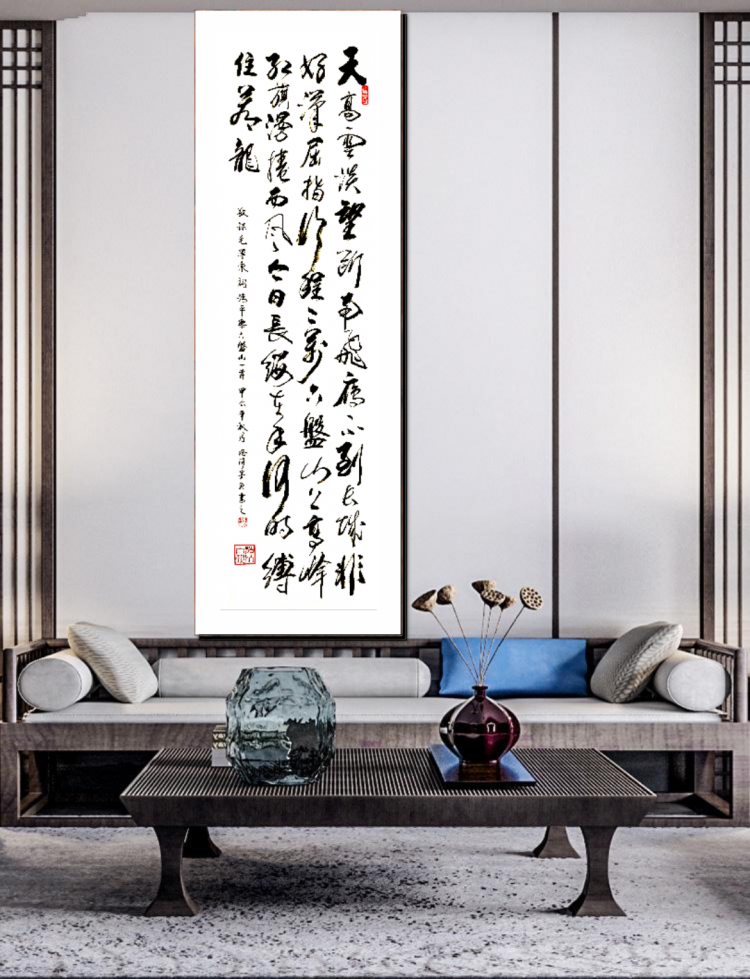 天高雲淡望断南飛雁不到长城非
好漢屈指行程二萬六盤山上高峰
红旗漫捲西風今日長纓在手何时縛
住蒼龍
敬録毛澤東詞清平樂六盤山一首 甲午年秋月 書之